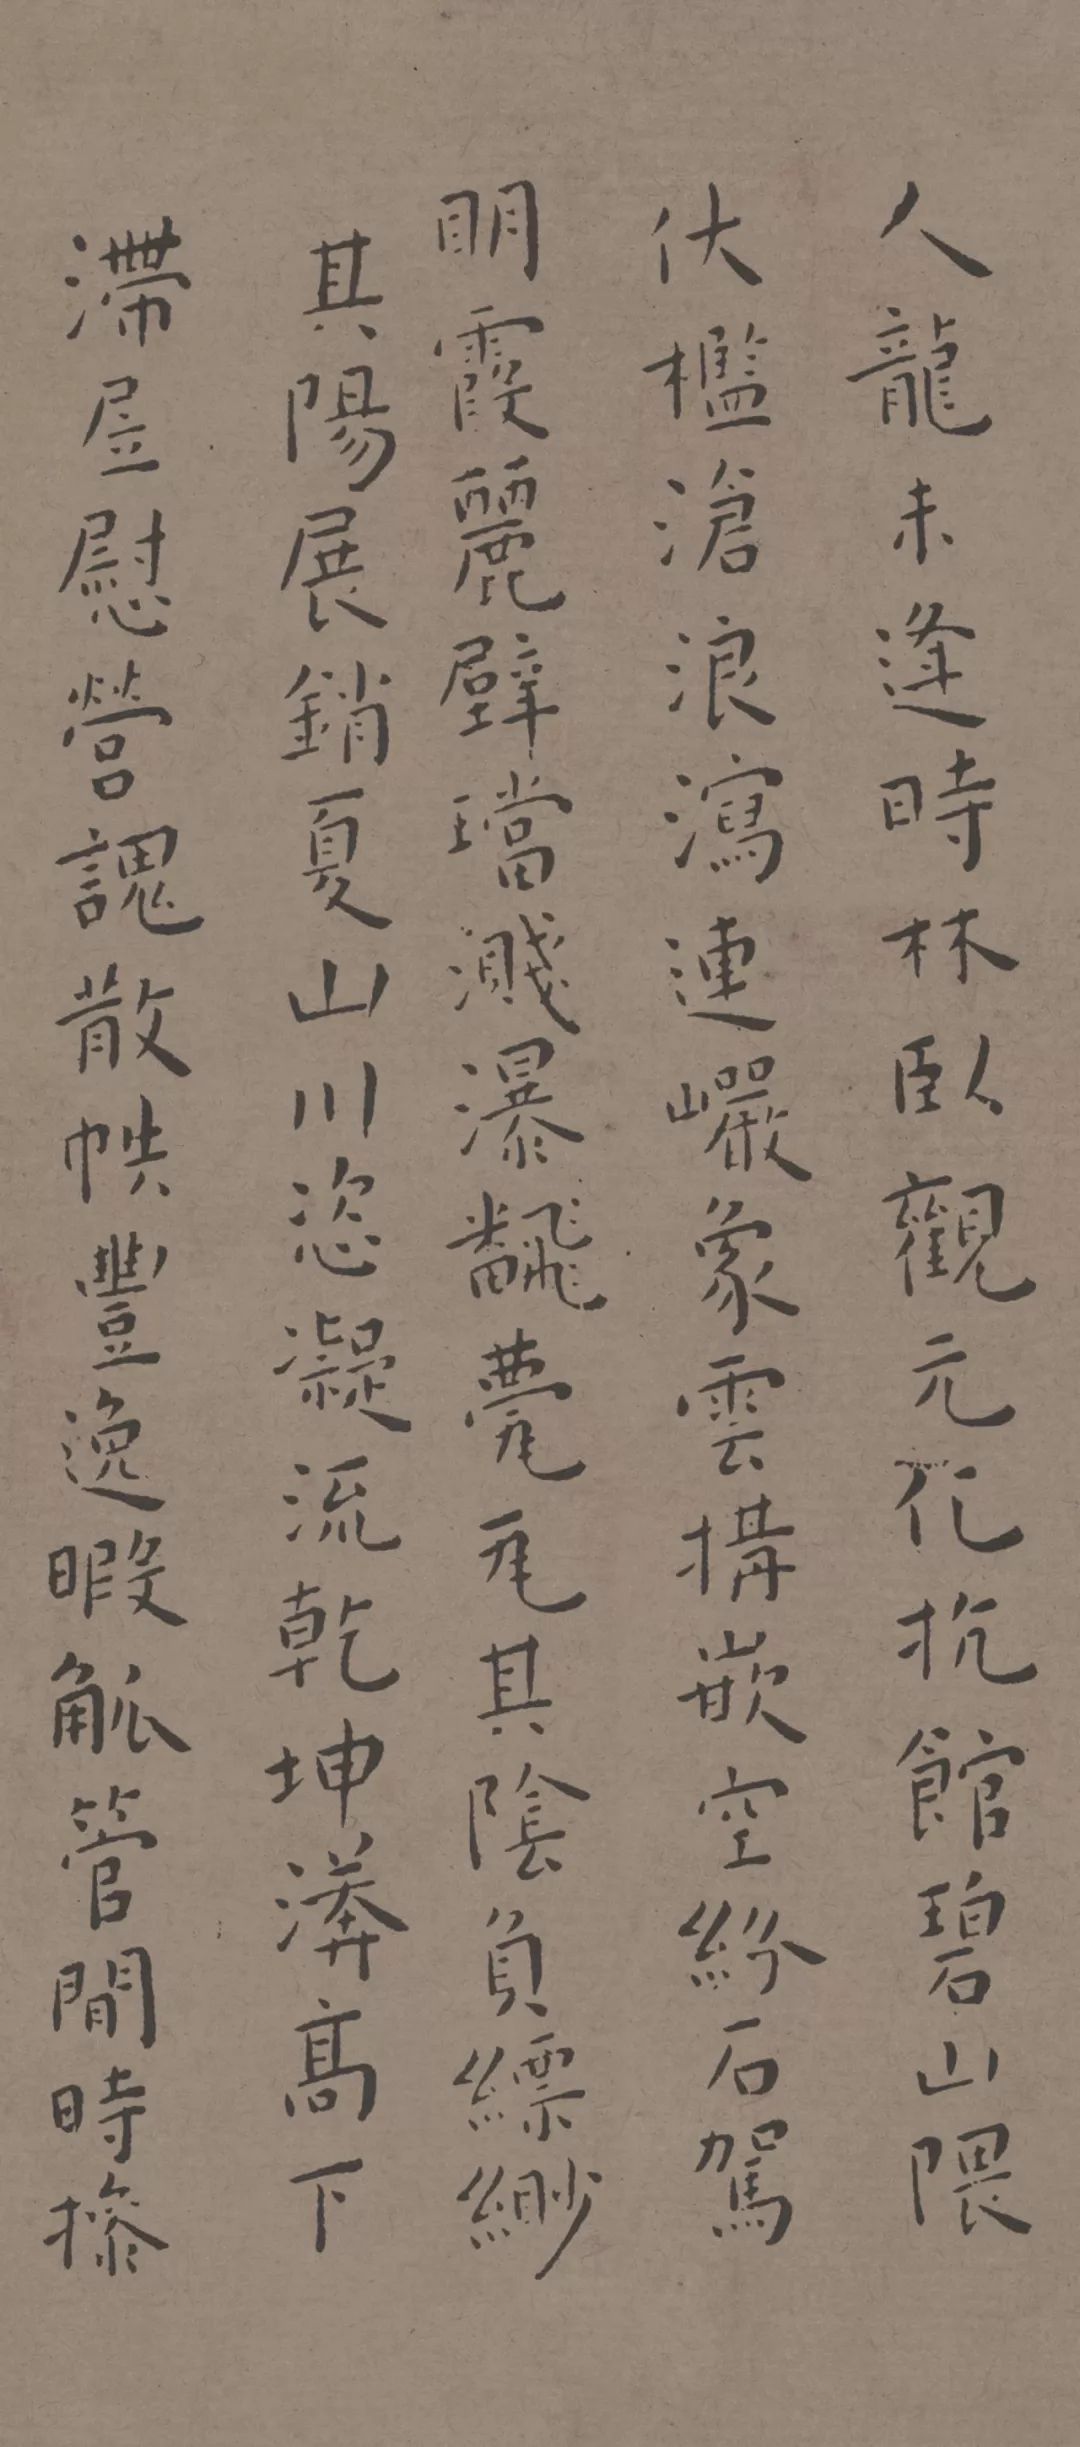 人龍未逢時林臥觀元化抗館碧山隈
伏檻滄浪瀉連巖象雲構嵌空紛石駕
明霞麗璧璫濺瀑飜甍瓦其陰負縹緲
其陽展銷夏山川恣凝流乾坤漭高下
滯屋慰營諰散帙豐逸暇觚管閒時摻